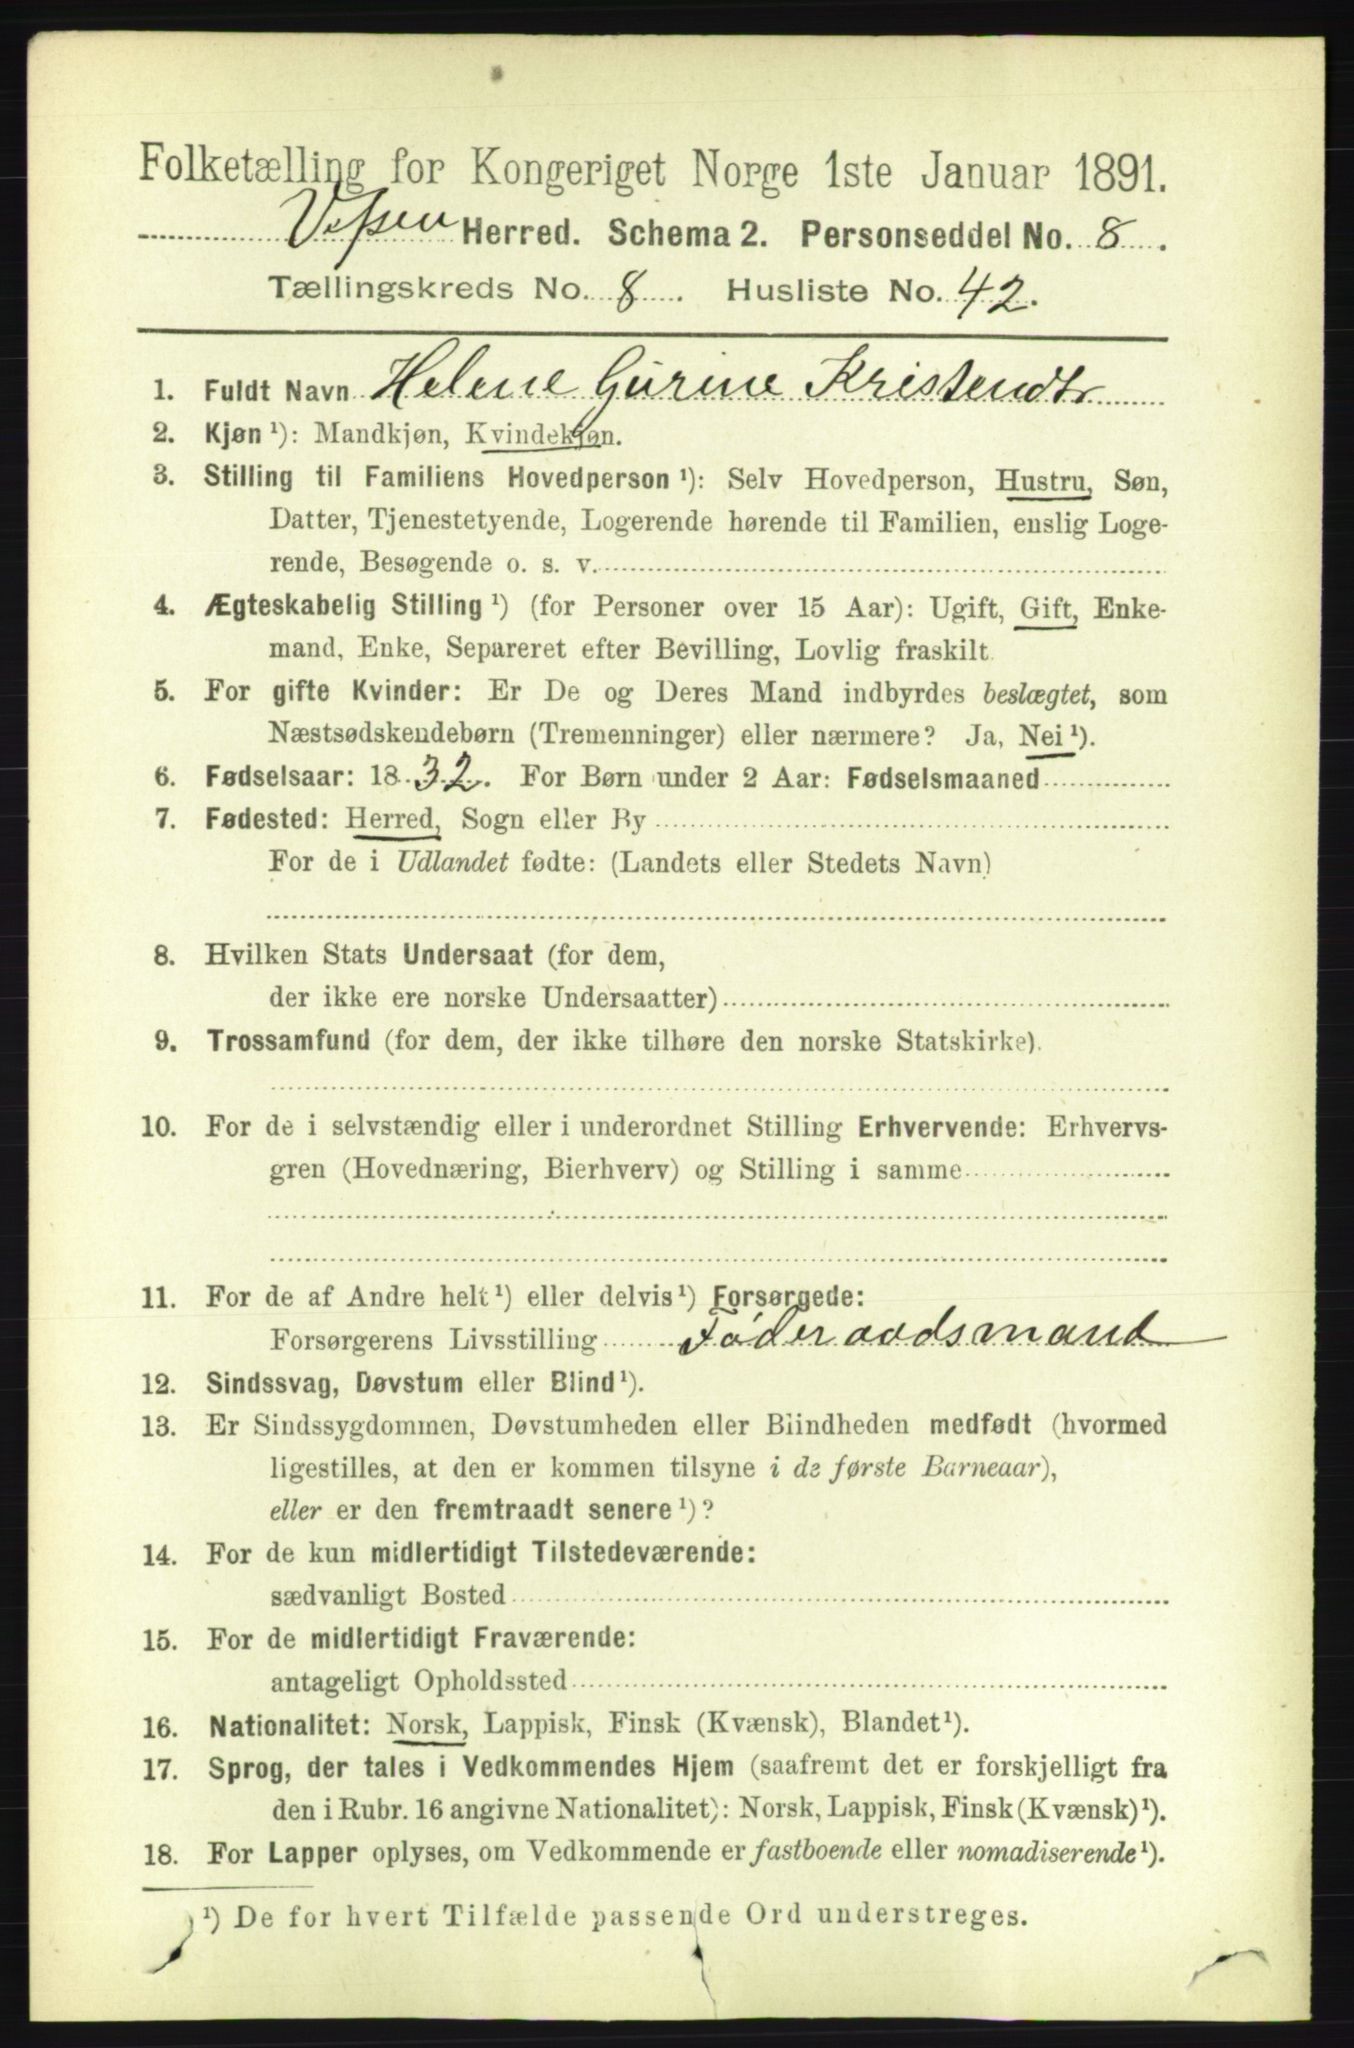 Folketælling for Kongeriget Norge 1ste Januar 1891.
Vefsen Herred. Schema 2. Personseddel No. 8.
Tællingskreds No. 8. Husliste No. 42.
1. Fuldt Navn Helene Gurine Kristendtr
2. Kjøn ¹): Mandkjøn, Kvindekjøn.
3. Stilling til Familiens Hovedperson ¹): Selv Hovedperson, Hustru, Søn,
Datter, Tjenestetyende, Logerende hørende til Familien, enslig Loge-
rende, Besøgende o. s. v.
4. Ægteskabelig Stilling ¹) (for Personer over 15 Aar): Ugift, Gift, Enke-
mand, Enke, Separeret efter Bevilling, Lovlig fraskilt.
5. For gifte Kvinder: Er De og Deres Mand indbyrdes beslægtet, som
Næstsødskendebørn (Tremenninger) eller nærmere? Ja, Nei ¹).
6. Fødselsaar: 1832. For Børn under 2 Aar: Fødselsmaaned
7. Fødested: Herred, Sogn eller By
For de i Udlandet fødte: (Landets eller Stedets Navn)
8. Hvilken Stats Undersaat (for dem,
der ikke ere norske Undersaatter)
9. Trossamfund (for dem, der ikke tilhøre den norske Statskirke).
10. For de i selvstændig eller i underordnet Stilling Erhvervende: Erhvervs-
gren (Hovednæring, Bierhverv) og Stilling i samme
11. For de af Andre helt ¹) eller delvis ¹) Forsørgede:
Forsørgerens Livsstilling Føderaadsmand
12. Sindssvag, Døvstum eller Blind ¹).
13. Er Sindssygdommen, Døvstumheden eller Blindheden medfødt (hvormed
ligestilles, at den er kommen tilsyne i de første Barneaar),
eller er den fremtraadt senere ¹)?
14. For de kun midlertidigt Tilstedeværende:
sædvanligt Bosted
15. For de midlertidigt Fraværende:
antageligt Opholdssted
16. Nationalitet: Norsk, Lappisk, Finsk (Kvænsk), Blandet ¹).
17. Sprog, der tales i Vedkommendes Hjem (saafremt det er forskjelligt fra
den i Rubr. 16 angivne Nationalitet): Norsk, Lappisk, Finsk (Kvænsk) ¹).
18. For Lapper oplyses, om Vedkommende er fastboende eller nomadiserende ¹).
¹) De for hvert Tilfælde passende Ord understreges.